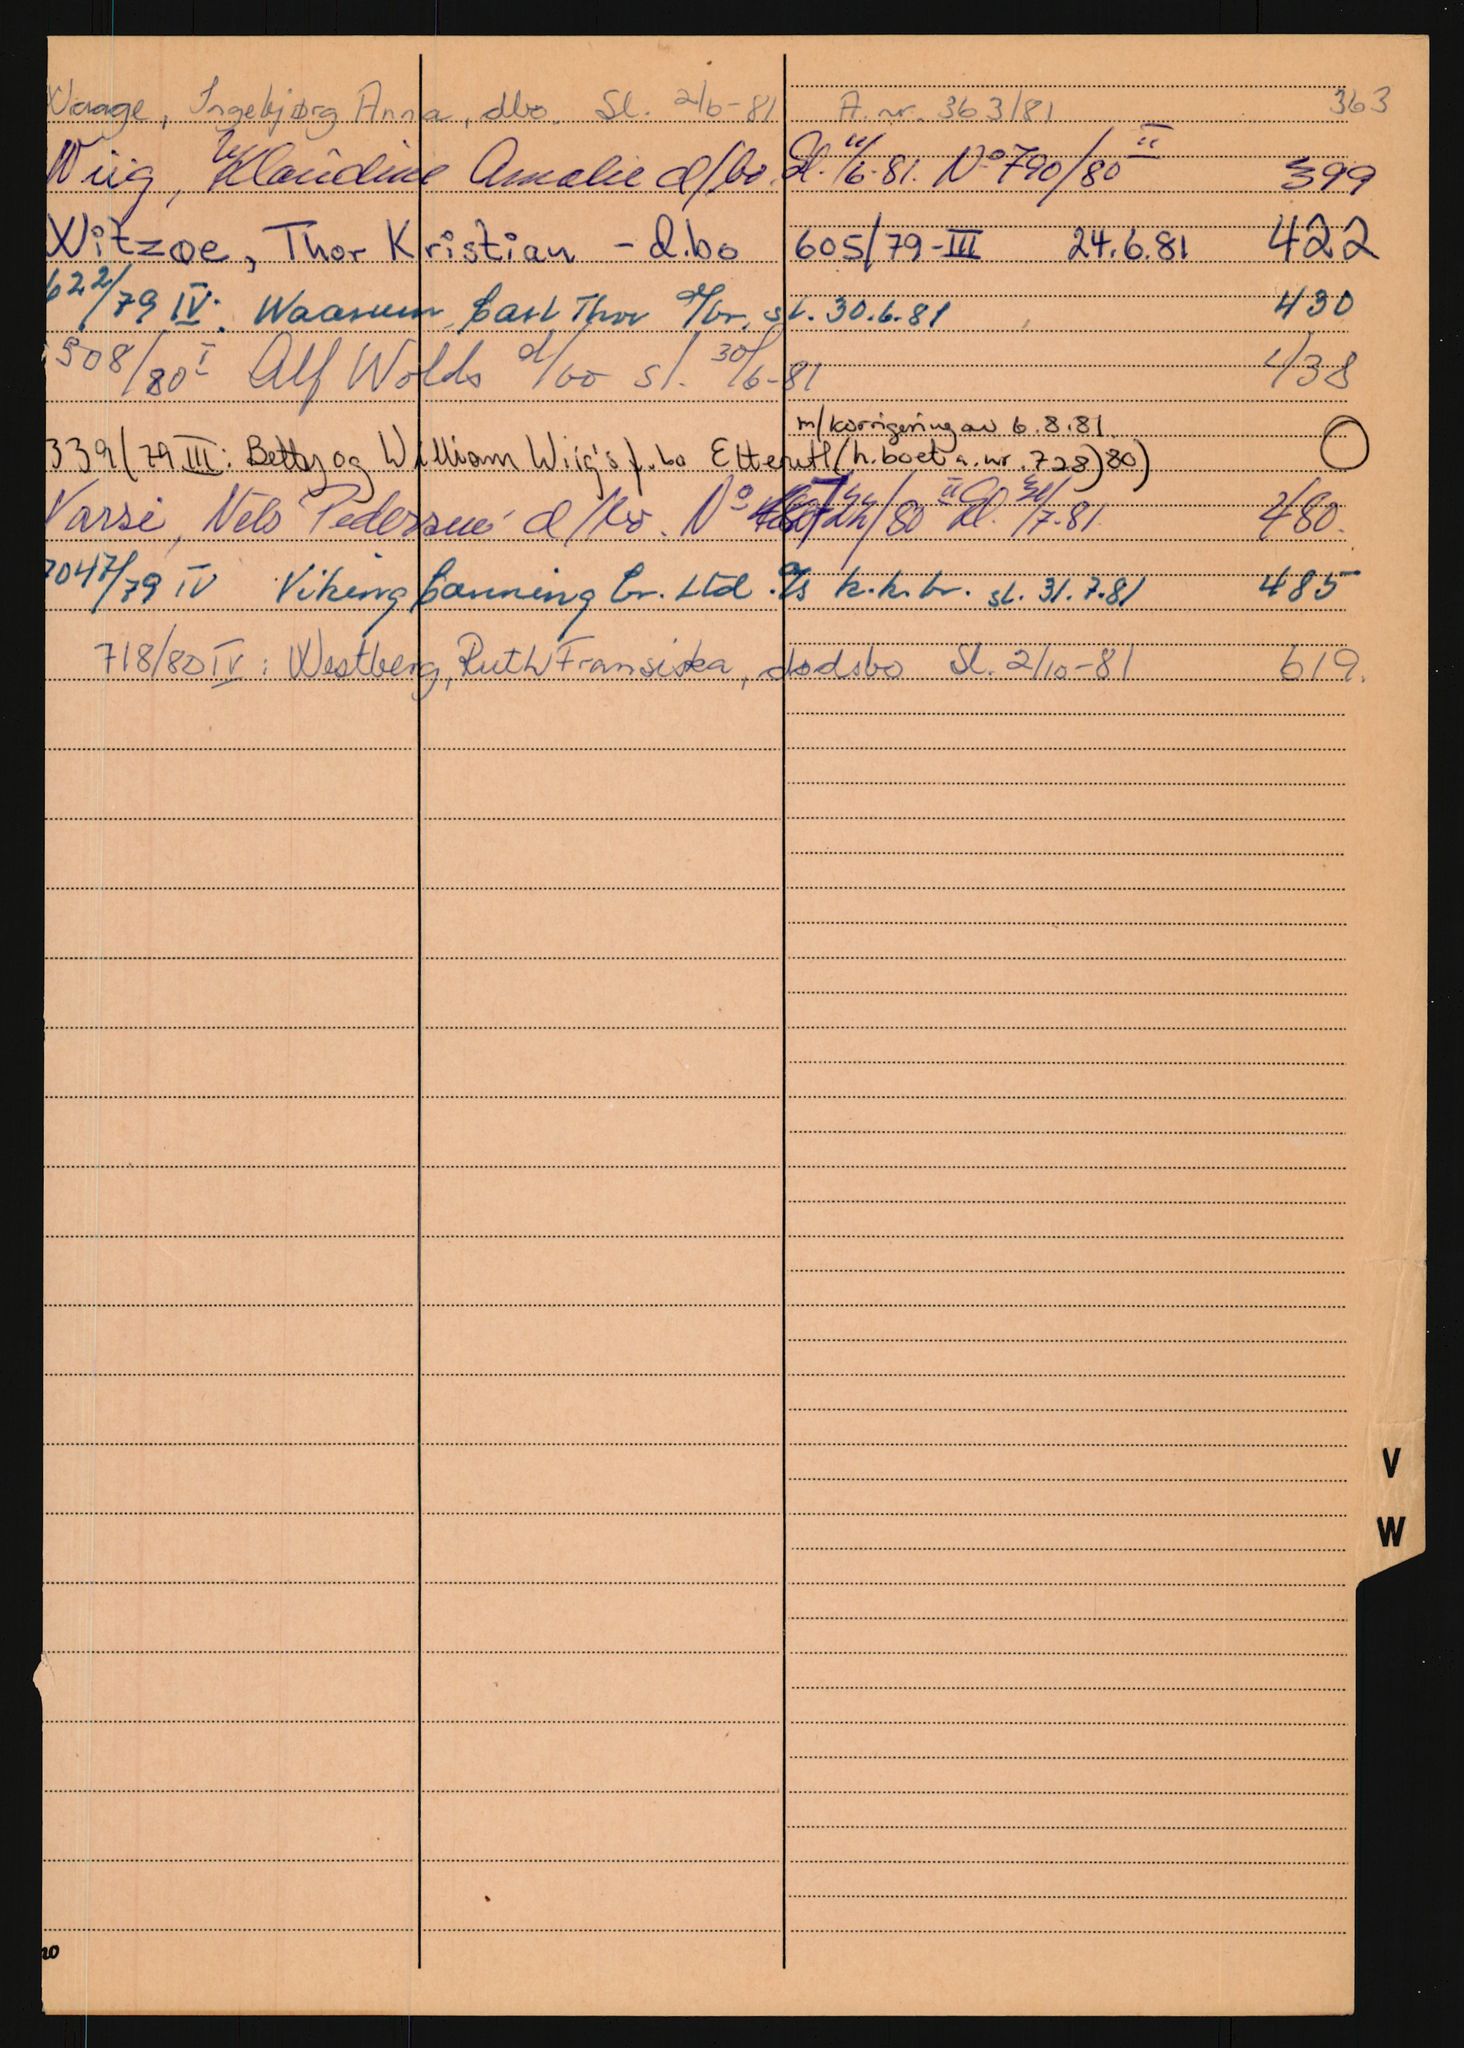 Waage, Ingebjørg Anna, dbo. Sl. 2/6-81 A. nr. 363/81 363
Wiig, Klaudine Amalie d/bo. Sl. 11/6-81. No 790/80 II 399
Witzøe, Thor Kristian - d.bo 605/79-III 24.6.81 422
622/79 IV. Waarum, Carl Thor d/br. sl. 30.6.81 430
508/80 I Alf Wolds d/bo sl. 30/6-81 438
m/korrigering av 6.8.81.
339/79 III: Betty og William Wiig's f.bo Etterutl (h.boet a. nr. 728/80)
Varsi, Nils Pedersen d/bo. No /80 II Sl. /7.81. 480.
7047/79 IV Viking Canning Co. Ltd. A/s k.k.br. sl. 31.7.81 485
718/80 IV: Westberg, Ruth Fransiska, dødsbo Sl. 2/10-81 619.
V
W
no